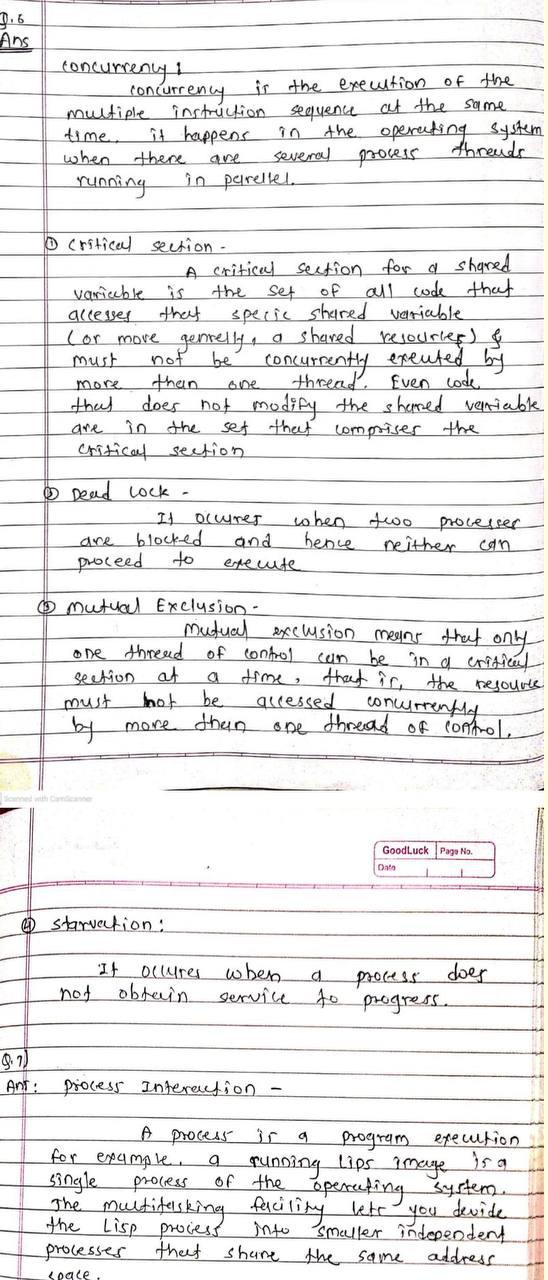 Q.6
Ans
concurrency :
concurrency is the execution of the
multiple instruction sequence at the same
time. it happens in the operating system
when there are several process threads
running in parellel.
① critical section -
A critical section for a shared
variable is the set of all code that
accesses that specic shared variable
(or more genrelly, a shared resources) &
must not be concurrently exeuted by
more then one thread. Even code
that does not modify the shared variable
are in the set that comprises the
critical section
② Dead Lock -
It occures when two processes
are blocked and hence neither can
proceed to execute
③ Mutual Exclusion -
Mutual exclusion means that only
one thread of control can be in a critical
section at a time, that is, the resource
must not be accessed concurrently
by more than one thread of control.
Scanned with CamScanner
GoodLuck Page No.
Date
④ Starvation :
It occures when a process does
not obtain service to progress.
Q.7)
Ans: process Interaction -
A process is a program execution
for example. a running Lips image is a
single process of the operating system.
The multitasking facility lets you devide
the Lisp process into smaller independent
processes that share the same address
space.